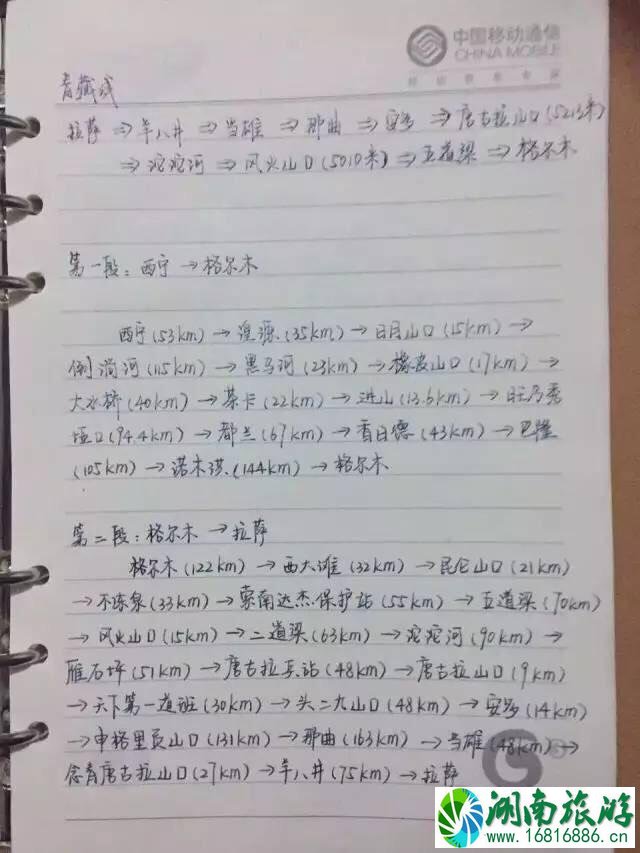 中国移动通信
CHINA MOBILE
青藏线
拉萨⇒羊八井⇒当雄⇒那曲⇒安多⇒唐古拉山口(5213米)
⇒沱沱河⇒风火山口(5010米)⇒五道梁⇒格尔木
第一段:西宁→格尔木
西宁(53km)→湟源(35km)→日月山口(15km)→
倒淌河(115km)→黑马河(23km)→橡皮山口(17km)→
大水桥(40km)→茶卡(22km)→进山(13.6km)→旺尕秀
垭口(94.4km)→都兰(67km)→香日德(43km)→巴隆
(105km)→诺木洪(144km)→格尔木
第二段:格尔木→拉萨
格尔木(122km)→西大滩(32km)→昆仑山口(21km)
→不冻泉(33km)→索南达杰保护站(55km)→五道梁(70km)
→风火山口(15km)→二道梁(63km)→沱沱河(90km)→
雁石坪(51km)→唐古拉兵站(48km)→唐古拉山口(9km)
→天下第一道班(30km)→头二九山口(48km)→安多(14km)
→申格里贡山口(131km)→那曲(163km)→当雄(48km)→
念青唐古拉山口(27km)→羊八井(75km)→拉萨
湖南旅游
www.16816886.cn